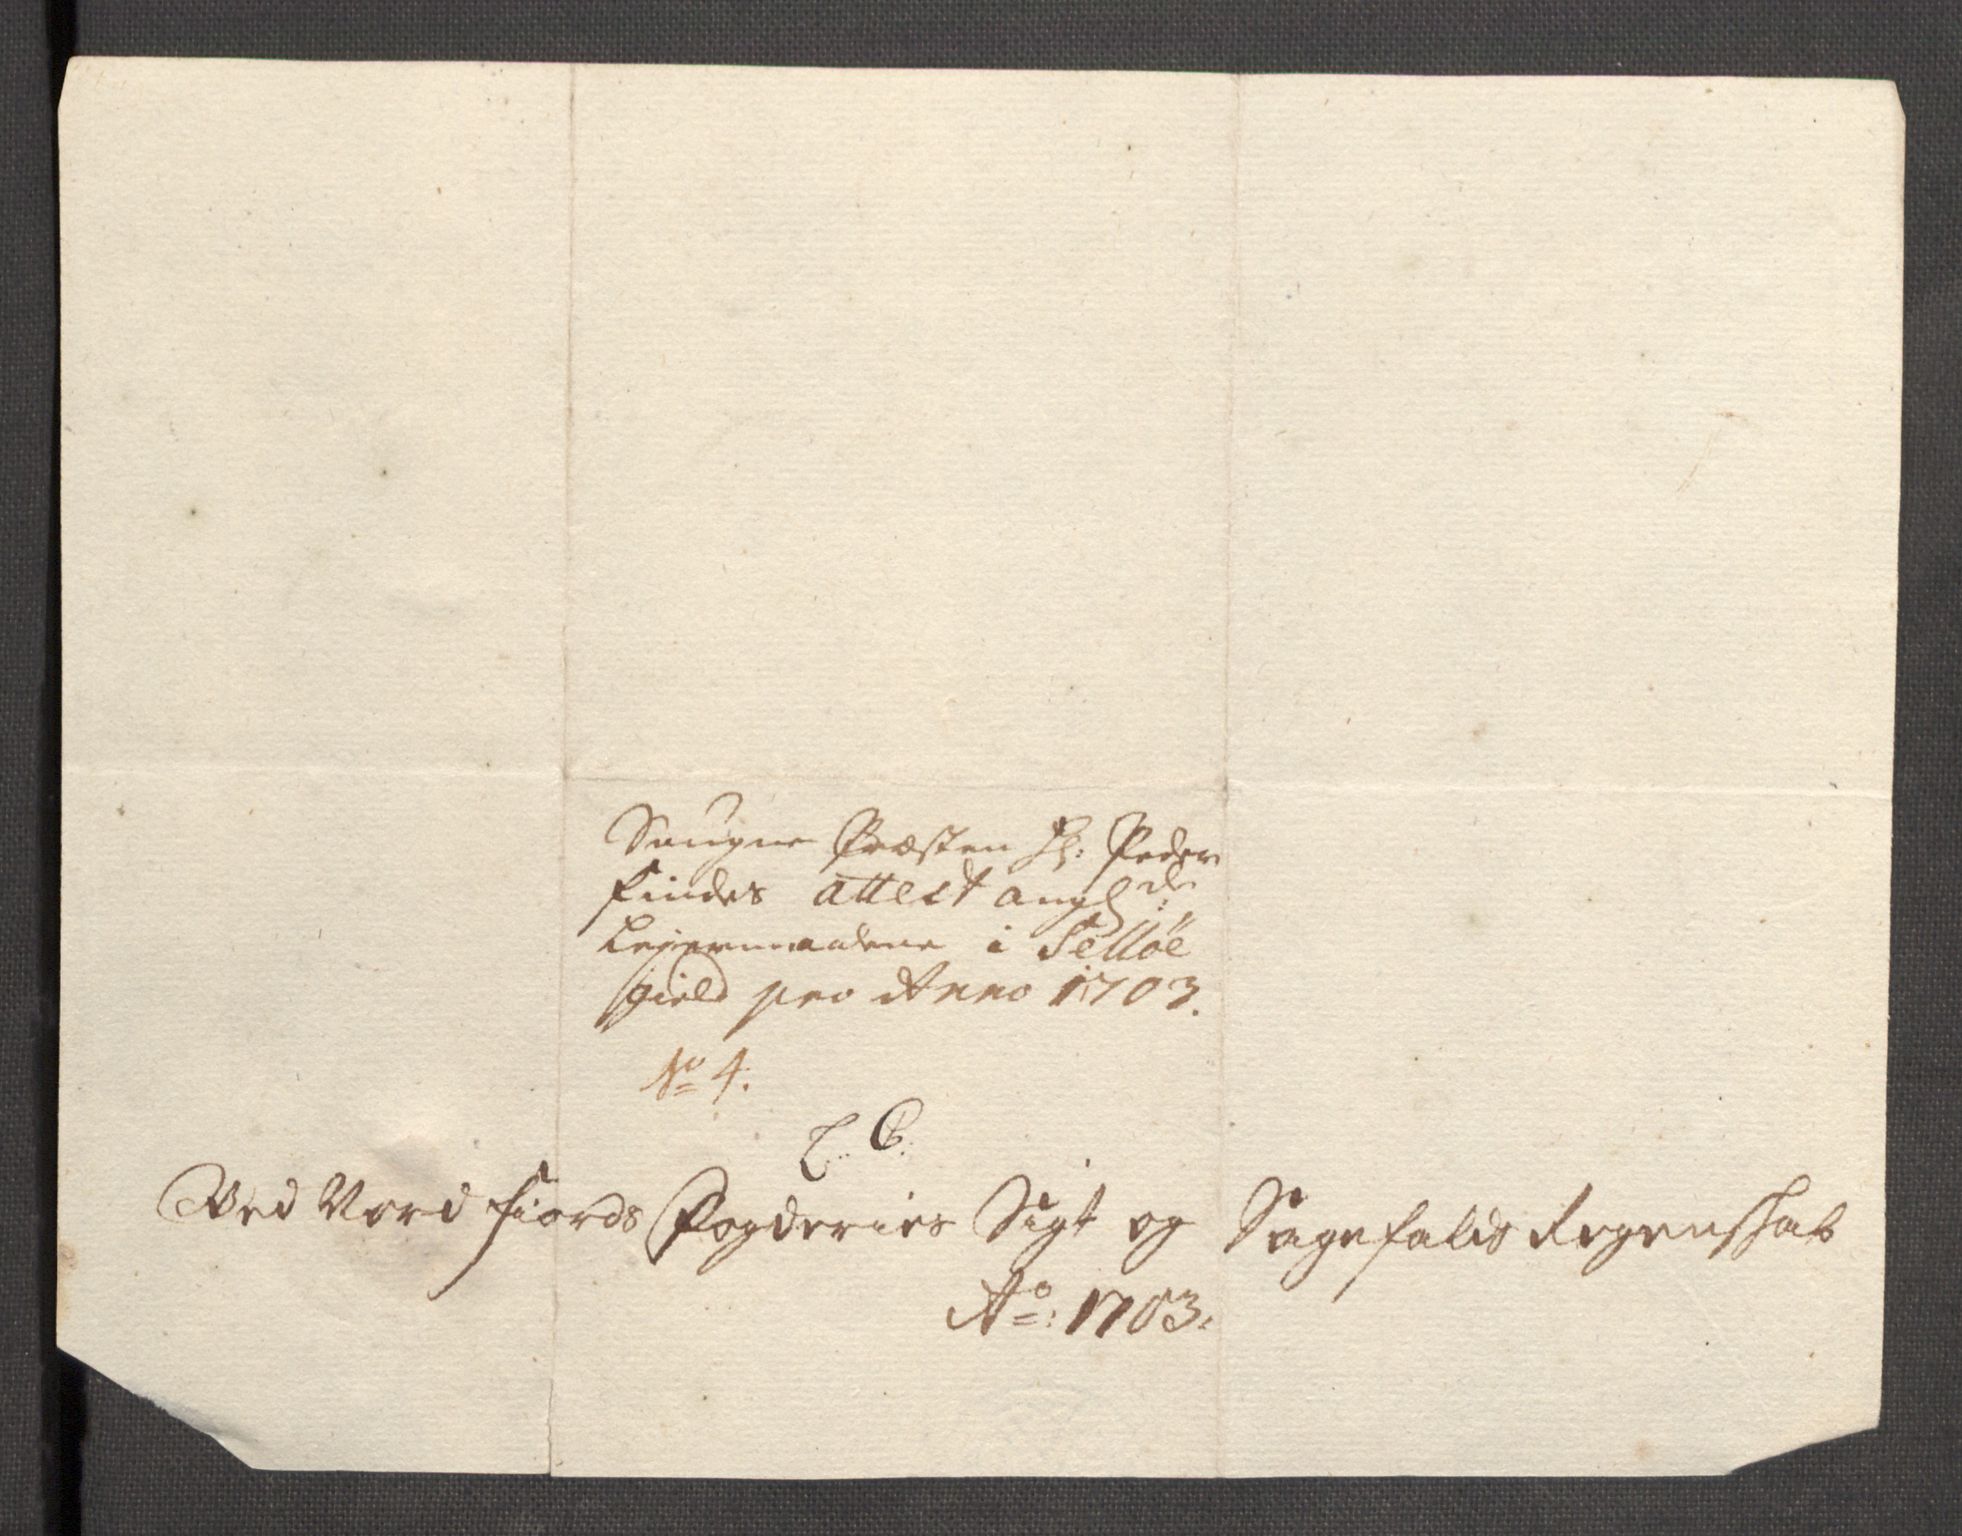 Saugne Præsten Hr: Peder
Findes attest angl: de
Leyermaalene i Selløe
gield pro Anno 1703.
No 4.
L. C.
Ved Nord fiords Fogderies Sigt og Sagefalds Regenskab
Ao: 1703.